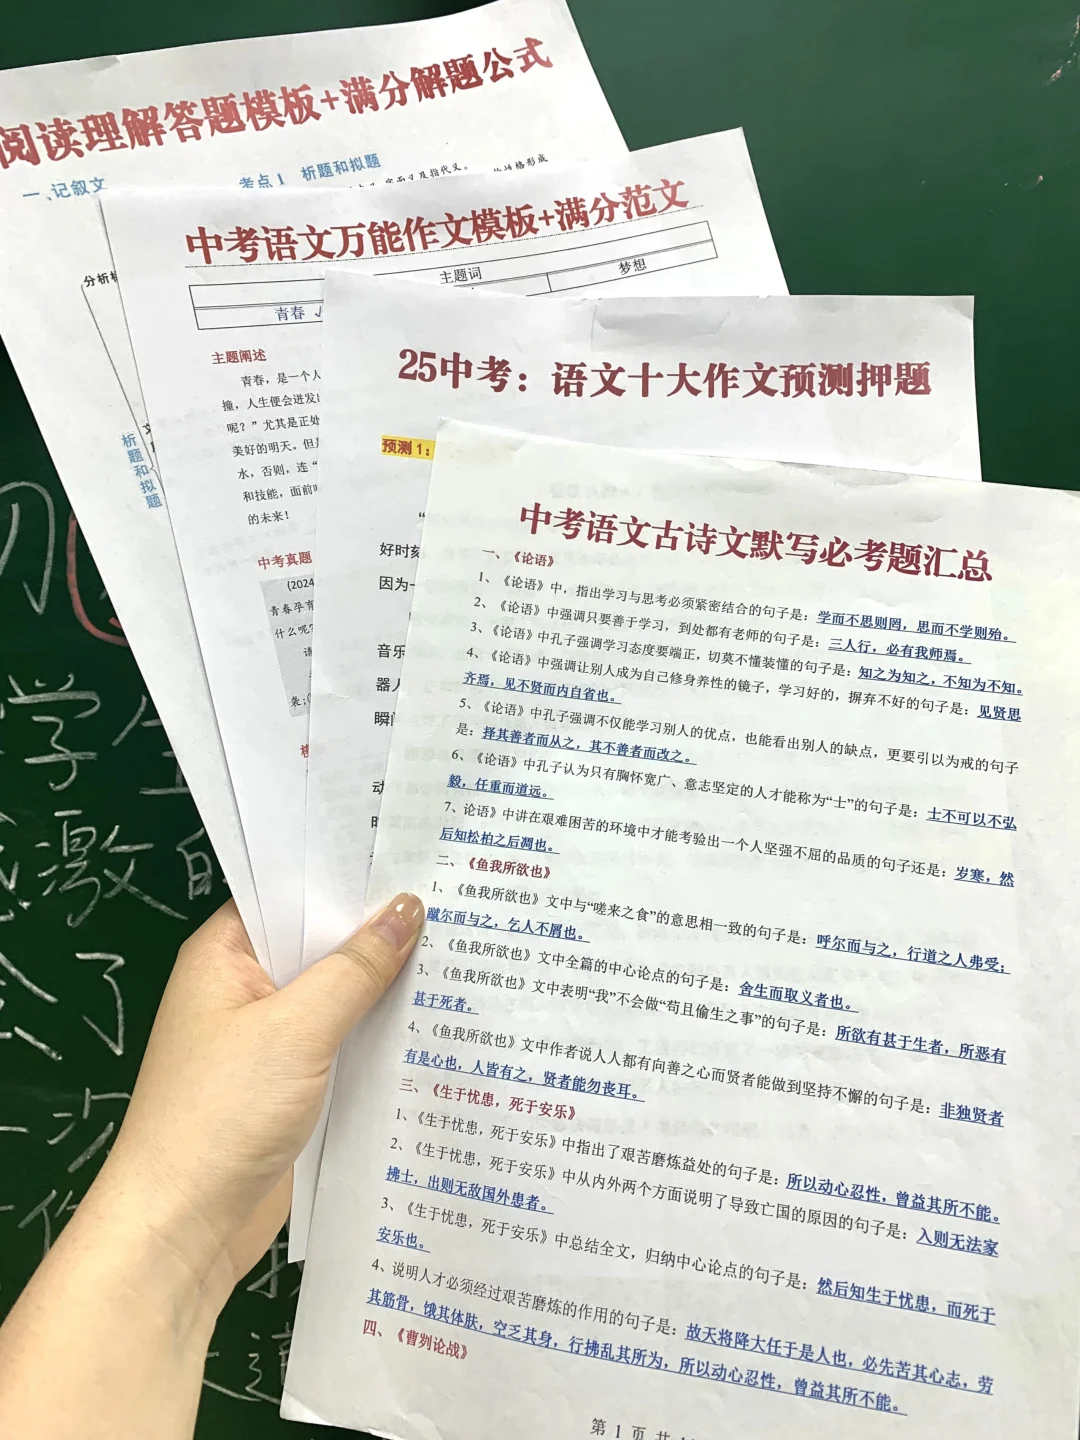 阅读理解答题模板+满分解题公式
一、记叙文
考点1 析题和拟题
字面义及指代义。
中考语文万能作文模板+满分范文
主题词
青春
梦想
主题阐述
青春，是一个人
撞，人生便会迸发
呢？”尤其是正处
美好的明天。但是
水，否则，连“
和技能，面前
的未来！
中考真题
(2024
青春孕育
什么呢?
析题和拟题
25中考：语文十大作文预测押题
预测1：
好时刻
因为一
音乐
器人
瞬间
中考语文古诗文默写必考题汇总
一、《论语》
1、《论语》中，指出学习与思考必须紧密结合的句子是：学而不思则罔，思而不学则殆。
2、《论语》中强调只要善于学习，到处都有老师的句子是：三人行，必有我师焉。
3、《论语》中孔子强调学习态度要端正，切莫不懂装懂的句子是：知之为知之，不知为不知。
4、《论语》中强调让别人成为自己修身养性的镜子，学习好的，摒弃不好的句子是：见贤思
齐焉，见不贤而内自省也。
5、《论语》中孔子强调不仅能学习别人的优点，也能看出别人的缺点，更要引以为戒的句子
是：择其善者而从之，其不善者而改之。
6、《论语》中孔子认为只有胸怀宽广、意志坚定的人才能称为“士”的句子是：士不可以不弘
毅，任重而道远。
7、论语》中讲在艰难困苦的环境中才能考验出一个人坚强不屈的品质的句子还是：岁寒，然
后知松柏之后凋也。
二、《鱼我所欲也》
1、《鱼我所欲也》文中与“嗟来之食”的意思相一致的句子是：呼尔而与之，行道之人弗受；
蹴尔而与之，乞人不屑也。
2、《鱼我所欲也》文中全篇的中心论点的句子是：舍生而取义者也。
3、《鱼我所欲也》文中表明“我”不会做“苟且偷生之事”的句子是：所欲有甚于生者，所恶有
甚于死者。
4、《鱼我所欲也》文中作者说人人都有向善之心而贤者能做到坚持不懈的句子是：非独贤者
有是心也，人皆有之，贤者能勿丧耳。
三、《生于忧患，死于安乐》
1、《生于忧患，死于安乐》中指出了艰苦磨炼益处的句子是：所以动心忍性，曾益其所不能。
2、《生于忧患，死于安乐》中从内外两个方面说明了导致亡国的原因的句子是：入则无法家
拂士，出则无敌国外患者。
3、《生于忧患，死于安乐》中总结全文，归纳中心论点的句子是：然后知生于忧患，而死于
安乐也。
4、说明人才必须经过艰苦磨炼的作用的句子是：故天将降大任于是人也，必先苦其心志，劳
其筋骨，饿其体肤，空乏其身，行拂乱其所为，所以动心忍性，曾益其所不能。
四、《曹刿论战》
第 1 页 共
学生
激 的
了